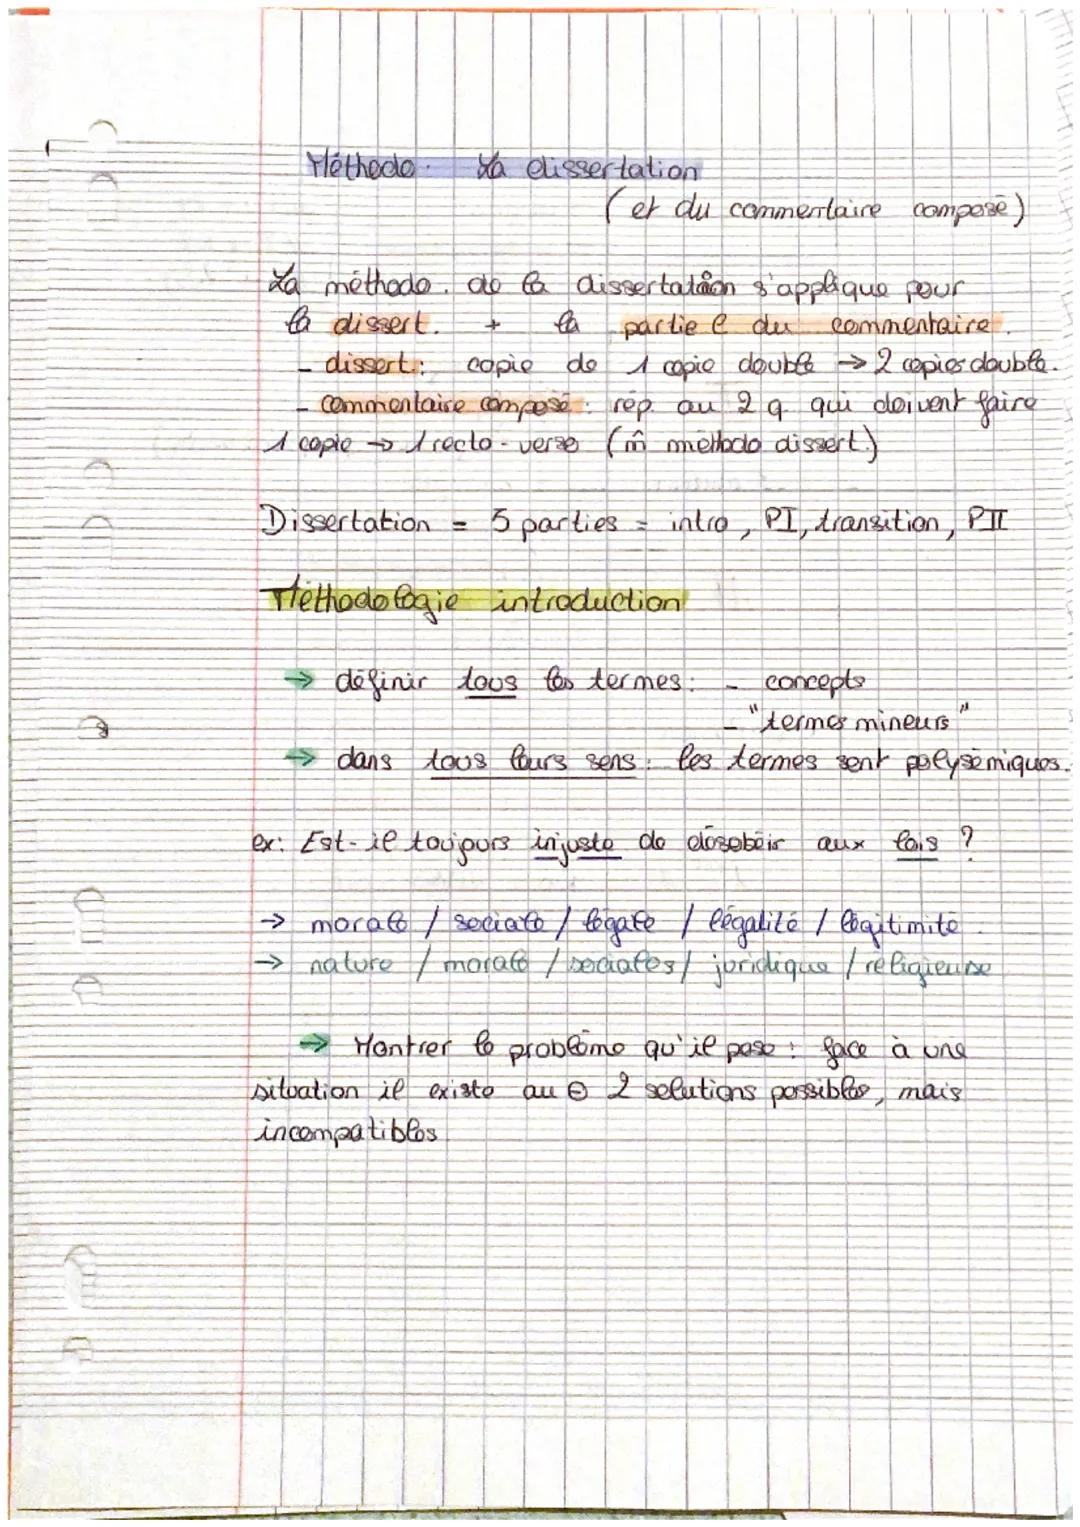 Méthodo. La dissertation
(et du commentaire composé)
La méthodo. de la dissertation s'applique pour
la dissert. + la partie de du commentaire.
- dissert.: copie de 1 copie double → 2 copies double.
- commentaire composé: rép. au 2 q. qui doivent faire
1 copie → 1 recto-verso (m̂ méthodo dissert.)
Dissertation = 5 parties = intro, PI, transition, PII
Méthodologie introduction
→ définir tous les termes: - concepts
- "termes mineurs"
→ dans tous leurs sens: les termes sont polysémiques.
ex: Est-il toujours injuste de désobéir aux lois ?
→ morale / sociale / légale / légalité / légitimité
→ nature / morale / sociales / juridique / religieuse
→ Montrer le problème qu'il pose: face à une
situation il existe au ⊖ 2 solutions possibles, mais
incompatibles